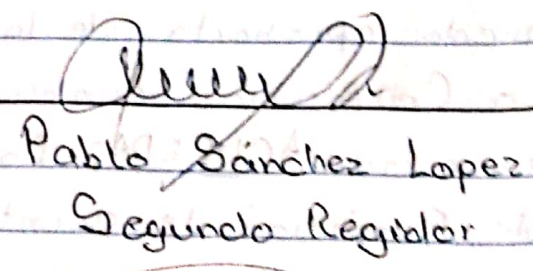 Pablo Sánchez Lopez
Segundo Regidor